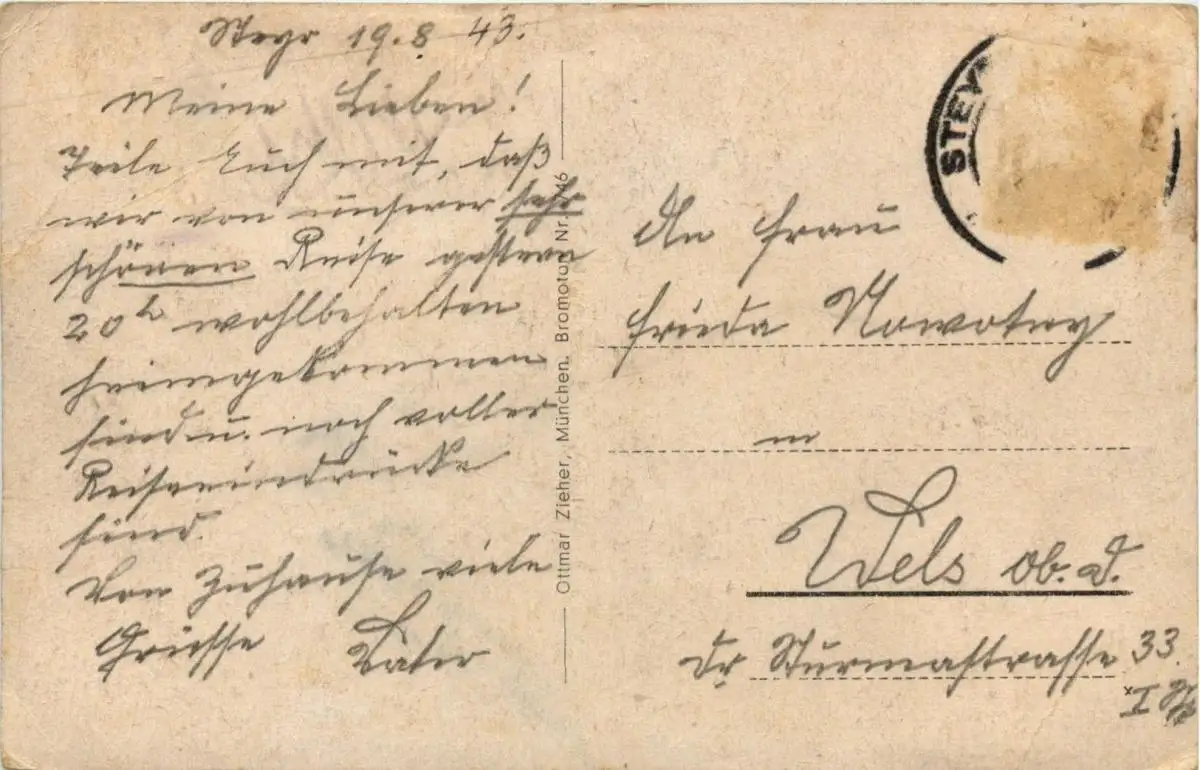 Steyr 19.8 43.
Meine Lieben!
Teile Euch mit, daß
wir von unserer sehr
schönen Reise gestern
20h wohlbehalten
heimgekommen
sind u. noch voller
Reiseeindrücke
sind.
Von Zuhause viele
Grüsse Vater
Ottmar Zieher, München. Bromoton Nr. 46
STEY
An Frau
Frieda Nowotny
in
Wels ob. d.
Dr Sturmastrasse 33.
I